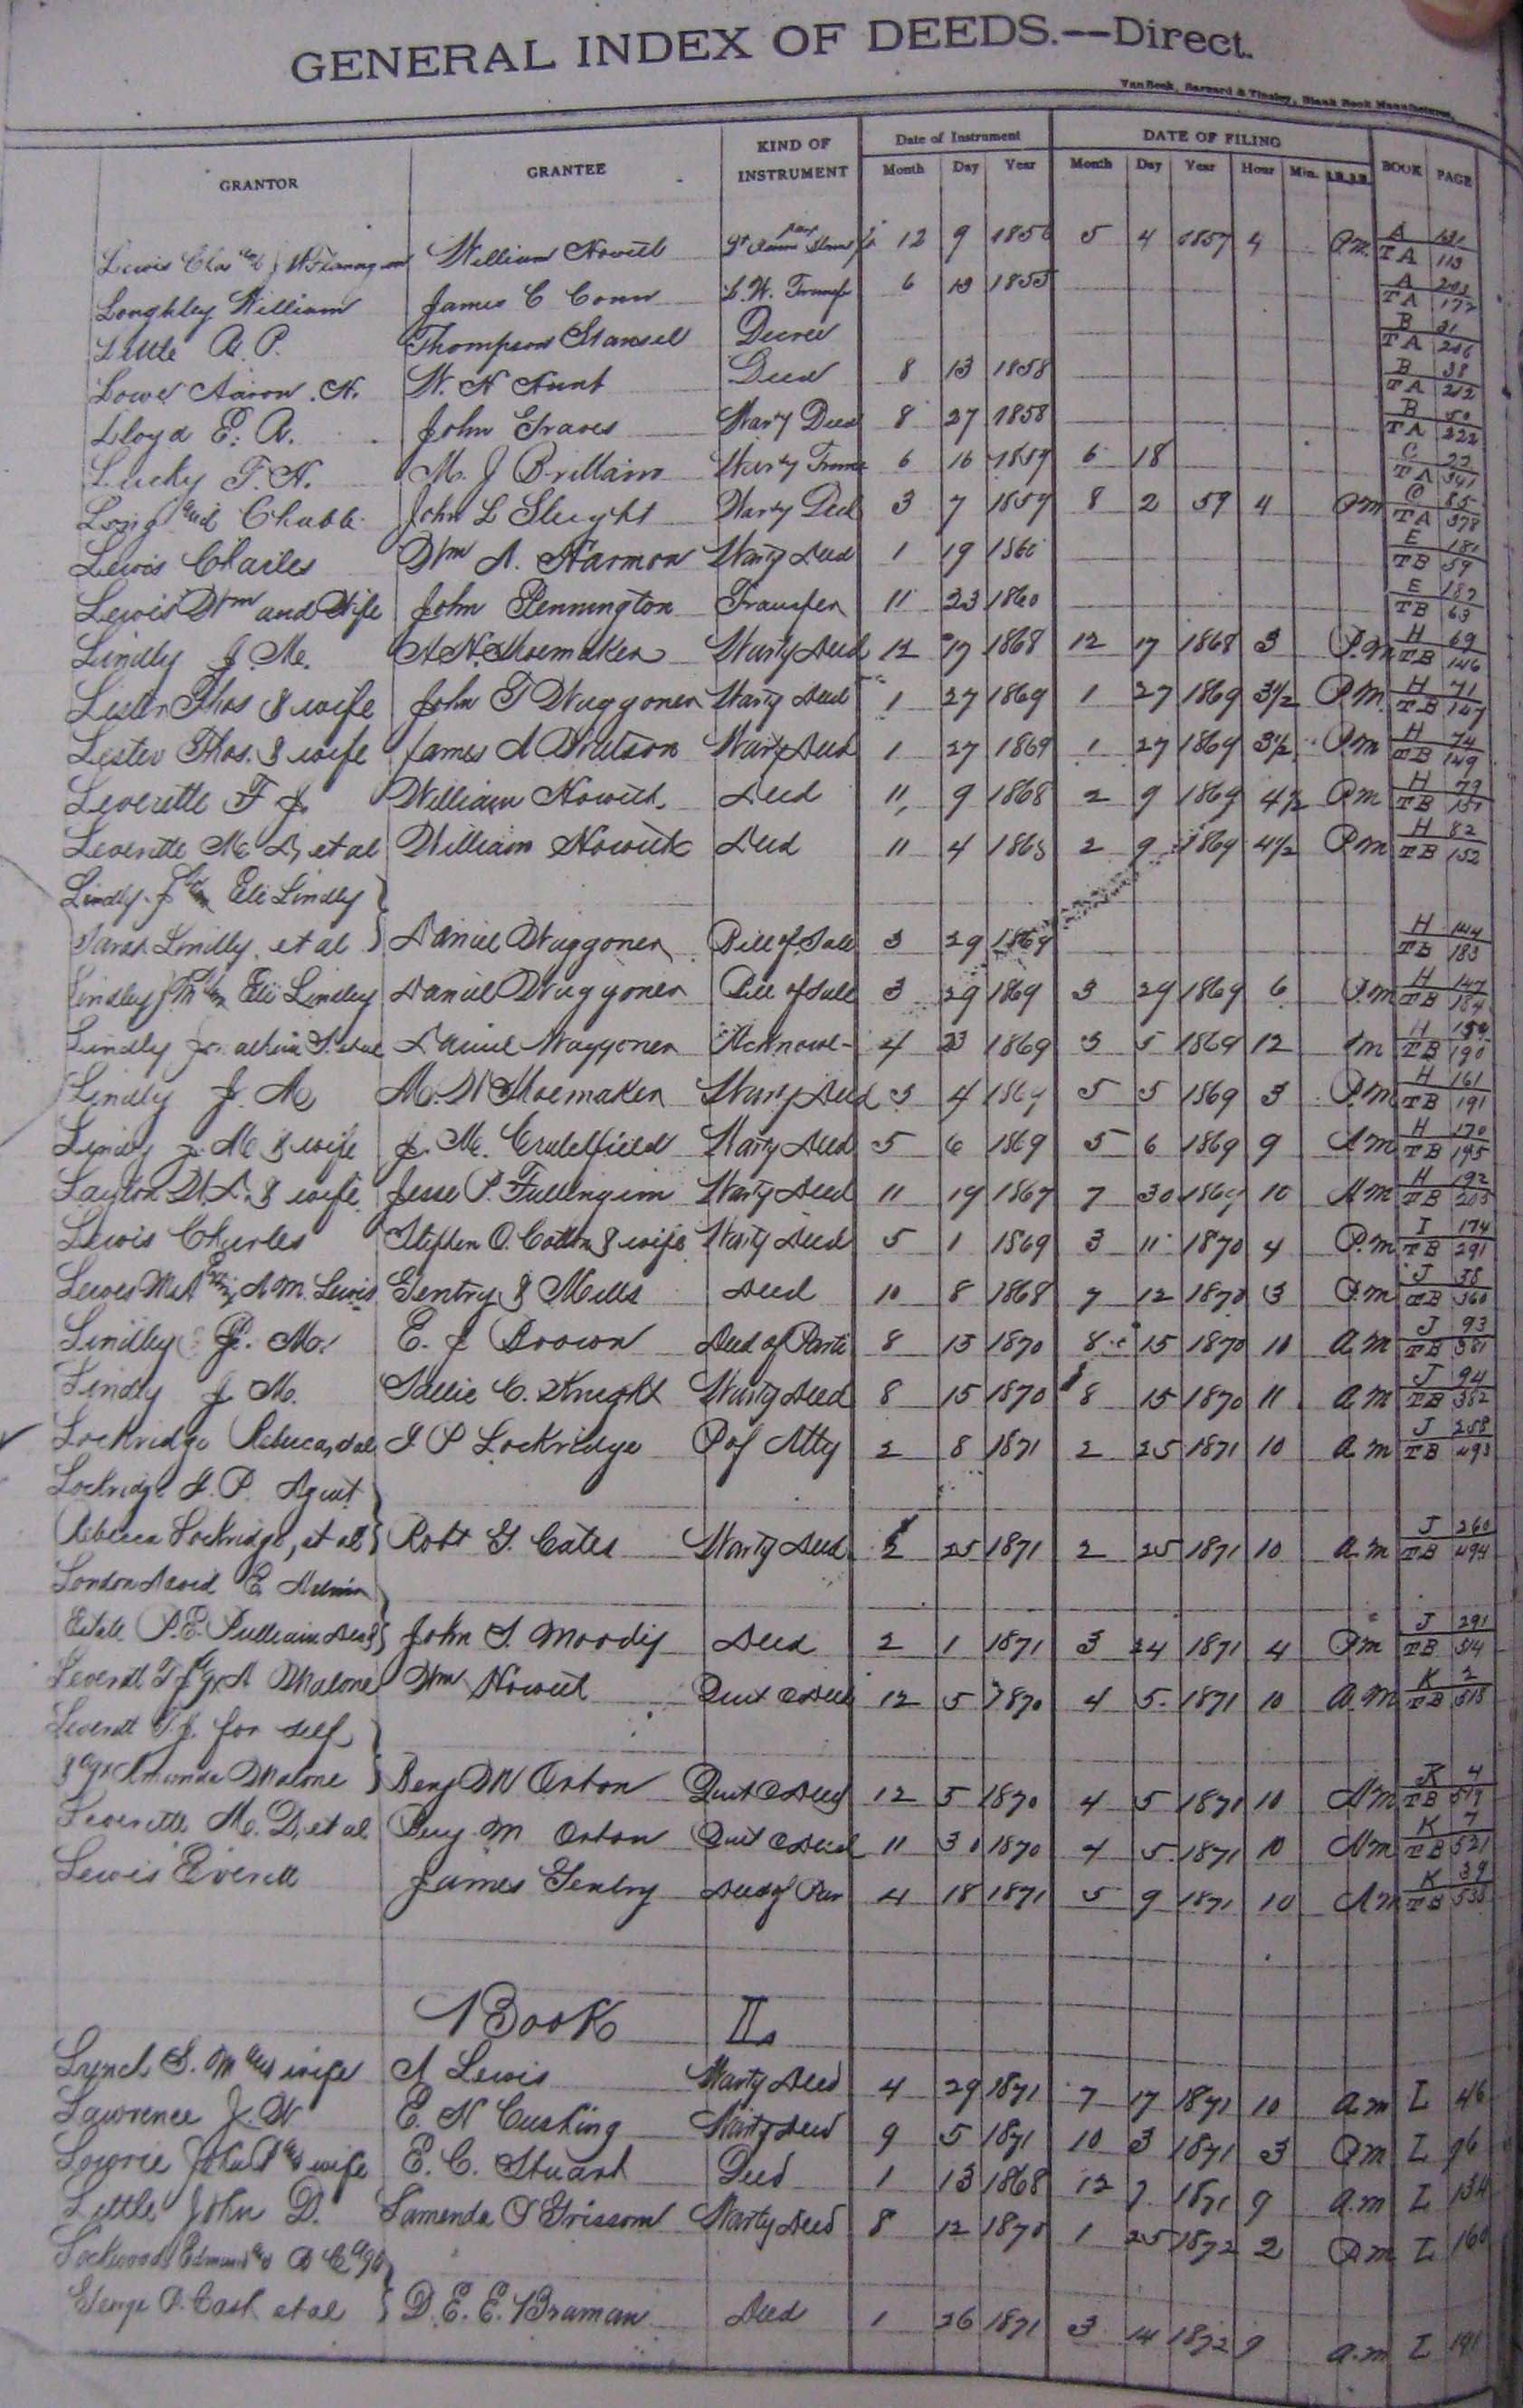 GENERAL INDEX OF DEEDS.—Direct.
Van Beek, Barnard & Tinsley, Blank Book Manufacturers,
GRANTOR GRANTEE KIND OF INSTRUMENT Date of Instrument Month Day Year DATE OF FILING Month Day Year Hour Min. BOOK PAGE
Lewis Chas William Howitt 12 9 1856 5 4 1857 4 P.M. A TA 113
Loughley William James C Conn L.W. Transf 6 1855 A TA 177
Little A. P. Thompson Stansel Decree B 31 TA 206
Lowe Aaron N. W. H Hunt Deed 8 13 1858 B 38 TA 212
Lloyd E. A. John Graves Warty Deed 8 27 1858 B 50 TA 222
Lucky F. H. M. J Brittain Warty Trans 6 16 1859 6 18 C 22 TA 341
Long and Chubb John L Sleight Warty Deed 3 7 1859 8 2 59 4 P M C 85 TA 378
Lewis Charles Wm A. Harmon Warty Deed 1 19 1860 E 181 TB 59
Lewis Wm and Wife John Pennington Transfer 11 23 1860 E 187 TB 63
Lindly J. M. Shoemaker Warty Deed 12 17 1868 12 17 1868 3 P.M H 69 TB 146
Lester Thos & wife John T Waggoner Warty Deed 1 27 1869 1 27 1869 3½ P.M. H 71 TB 147
Lester Thos. & wife James A Watson Warty Deed 1 27 1869 1 27 1869 3½ P.M H 74 TB 149
Leverette F J. William Howitt. Deed 11 9 1868 2 9 1869 4½ P.M H 79 TB 151
Leverette M D, et al William Howitt Deed 11 4 1868 2 9 1869 4½ P.M H 82 TB 152
Lindly J Eli Lindly
Sarah Lindly, et al Daniel Waggoner Bill of Sale 3 29 1869 H 144 TB 183
Lindley Eli Lindley Daniel Waggoner Bill of Sale 3 29 1869 3 29 1869 6 P.M H 147 TB 184
Lindly et al Daniel Waggoner Acknowl- 4 23 1869 5 5 1869 12 M H 159 TB 190
Lindly J. M Shoemaker Warty Deed 5 4 1869 5 5 1869 3 P.M H 161 TB 191
Lindly J. M & wife J. M. Crutchfield Warty Deed 5 6 1869 5 6 1869 9 A M H 170 TB 195
Layton & wife Jesse P. Fullingim Warty Deed 11 19 1867 7 30 1869 10 A M H 192 TB 205
Lewis Charles Stephen O. Cotton & wife Warty Deed 5 1 1869 3 11 1870 4 P.M I 174 TB 291
Lewis A M. Lewis Gentry & Mills Deed 10 8 1868 7 12 1870 3 P.M J 38 TB 360
Lindley J. M. E. J Brown Deed of Parti 8 15 1870 8 15 1870 10 A M J 93 TB 381
Lindly J M. Sallie C. Knight Warty Deed 8 15 1870 8 15 1870 11 A M J 94 TB 382
Lockridge Rebeca, et al J P Lockridge P of Atty 2 8 1871 2 25 1871 10 A M J 258 TB 493
Lockridge J. P. Agent
Rebecca Lockridge, et al Robt G. Cates Warty Deed 2 25 1871 2 25 1871 10 A M J 260 TB 494
London David E. Admin
Estate P. E. Pulliam John S. Moody Deed 2 1 1871 3 24 1871 4 P M J 291 TB 514
Leverett T J Malone Wm Howitt Quit C Deed 12 5 1870 4 5 1871 10 A. M K 2 TB 518
Leverett T. J. for self
& Agt Amanda Malone Benj M Orton Quit C Deed 12 5 1870 4 5 1871 10 A M K 4 TB 519
Leverette M. D, et al Benj M Orton Quit C Deed 11 30 1870 4 5 1871 10 A M K 7 TB 521
Lewis Everett James Gentry Deed of Par 4 18 1871 5 9 1871 10 A M K 39 TB 538
Book L
Lynch S. M and wife A Lewis Warty Deed 4 29 1871 7 17 1871 10 A.M L 46
Lawrence J. W E. H Cushing Warty Deed 9 5 1871 10 3 1871 3 P M L 96
Lowrie John and wife E. C. Stuart Deed 1 13 1868 12 7 1871 9 A.M L 134
Little John D. Lamenda Grissom Warty Deed 8 12 1870 1 25 1872 2 P M L 160
Lockwood Edmund
George D. Cash et al D. E. E. Braman Deed 1 26 1871 3 14 1872 9 A.M L 191